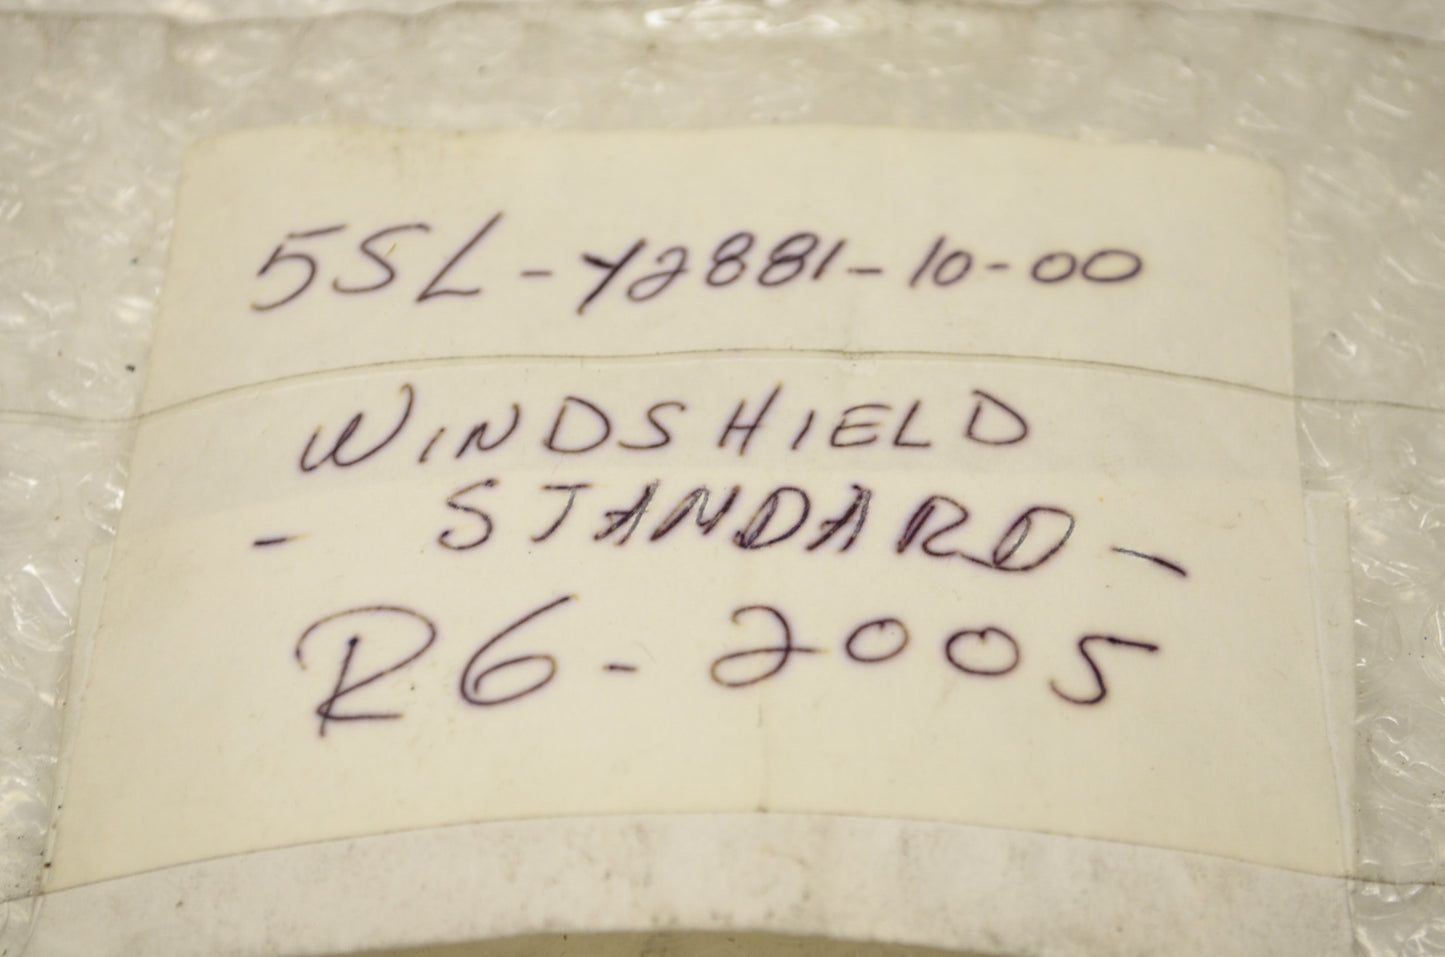 5SL-Y2881-10-00
WINDSHIELD
- STANDARD -
R6-2005